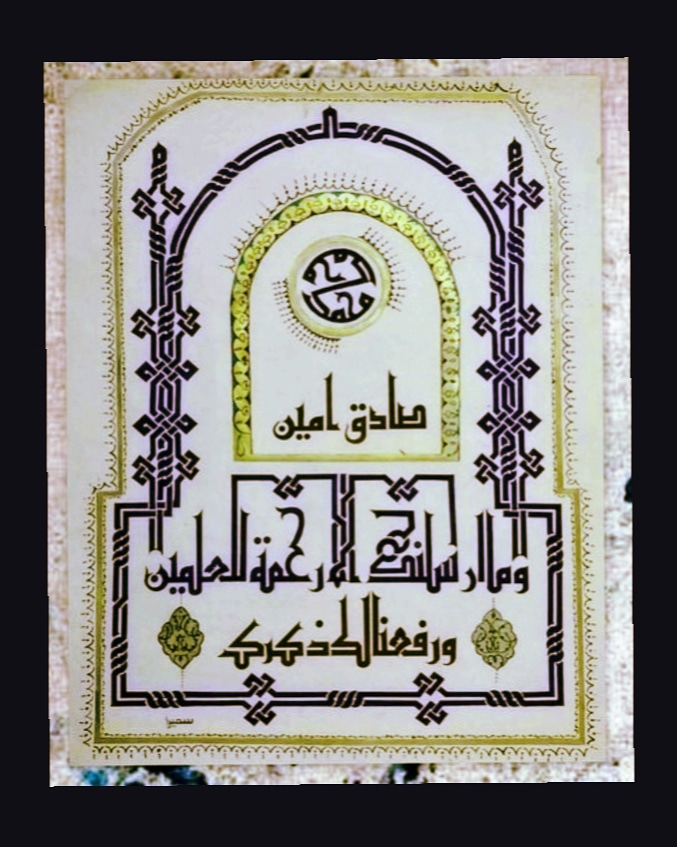 محمد
صادق امين
وما ارسلنك الا رحمة للعلمين
ورفعنا لك ذكرك
سميرا